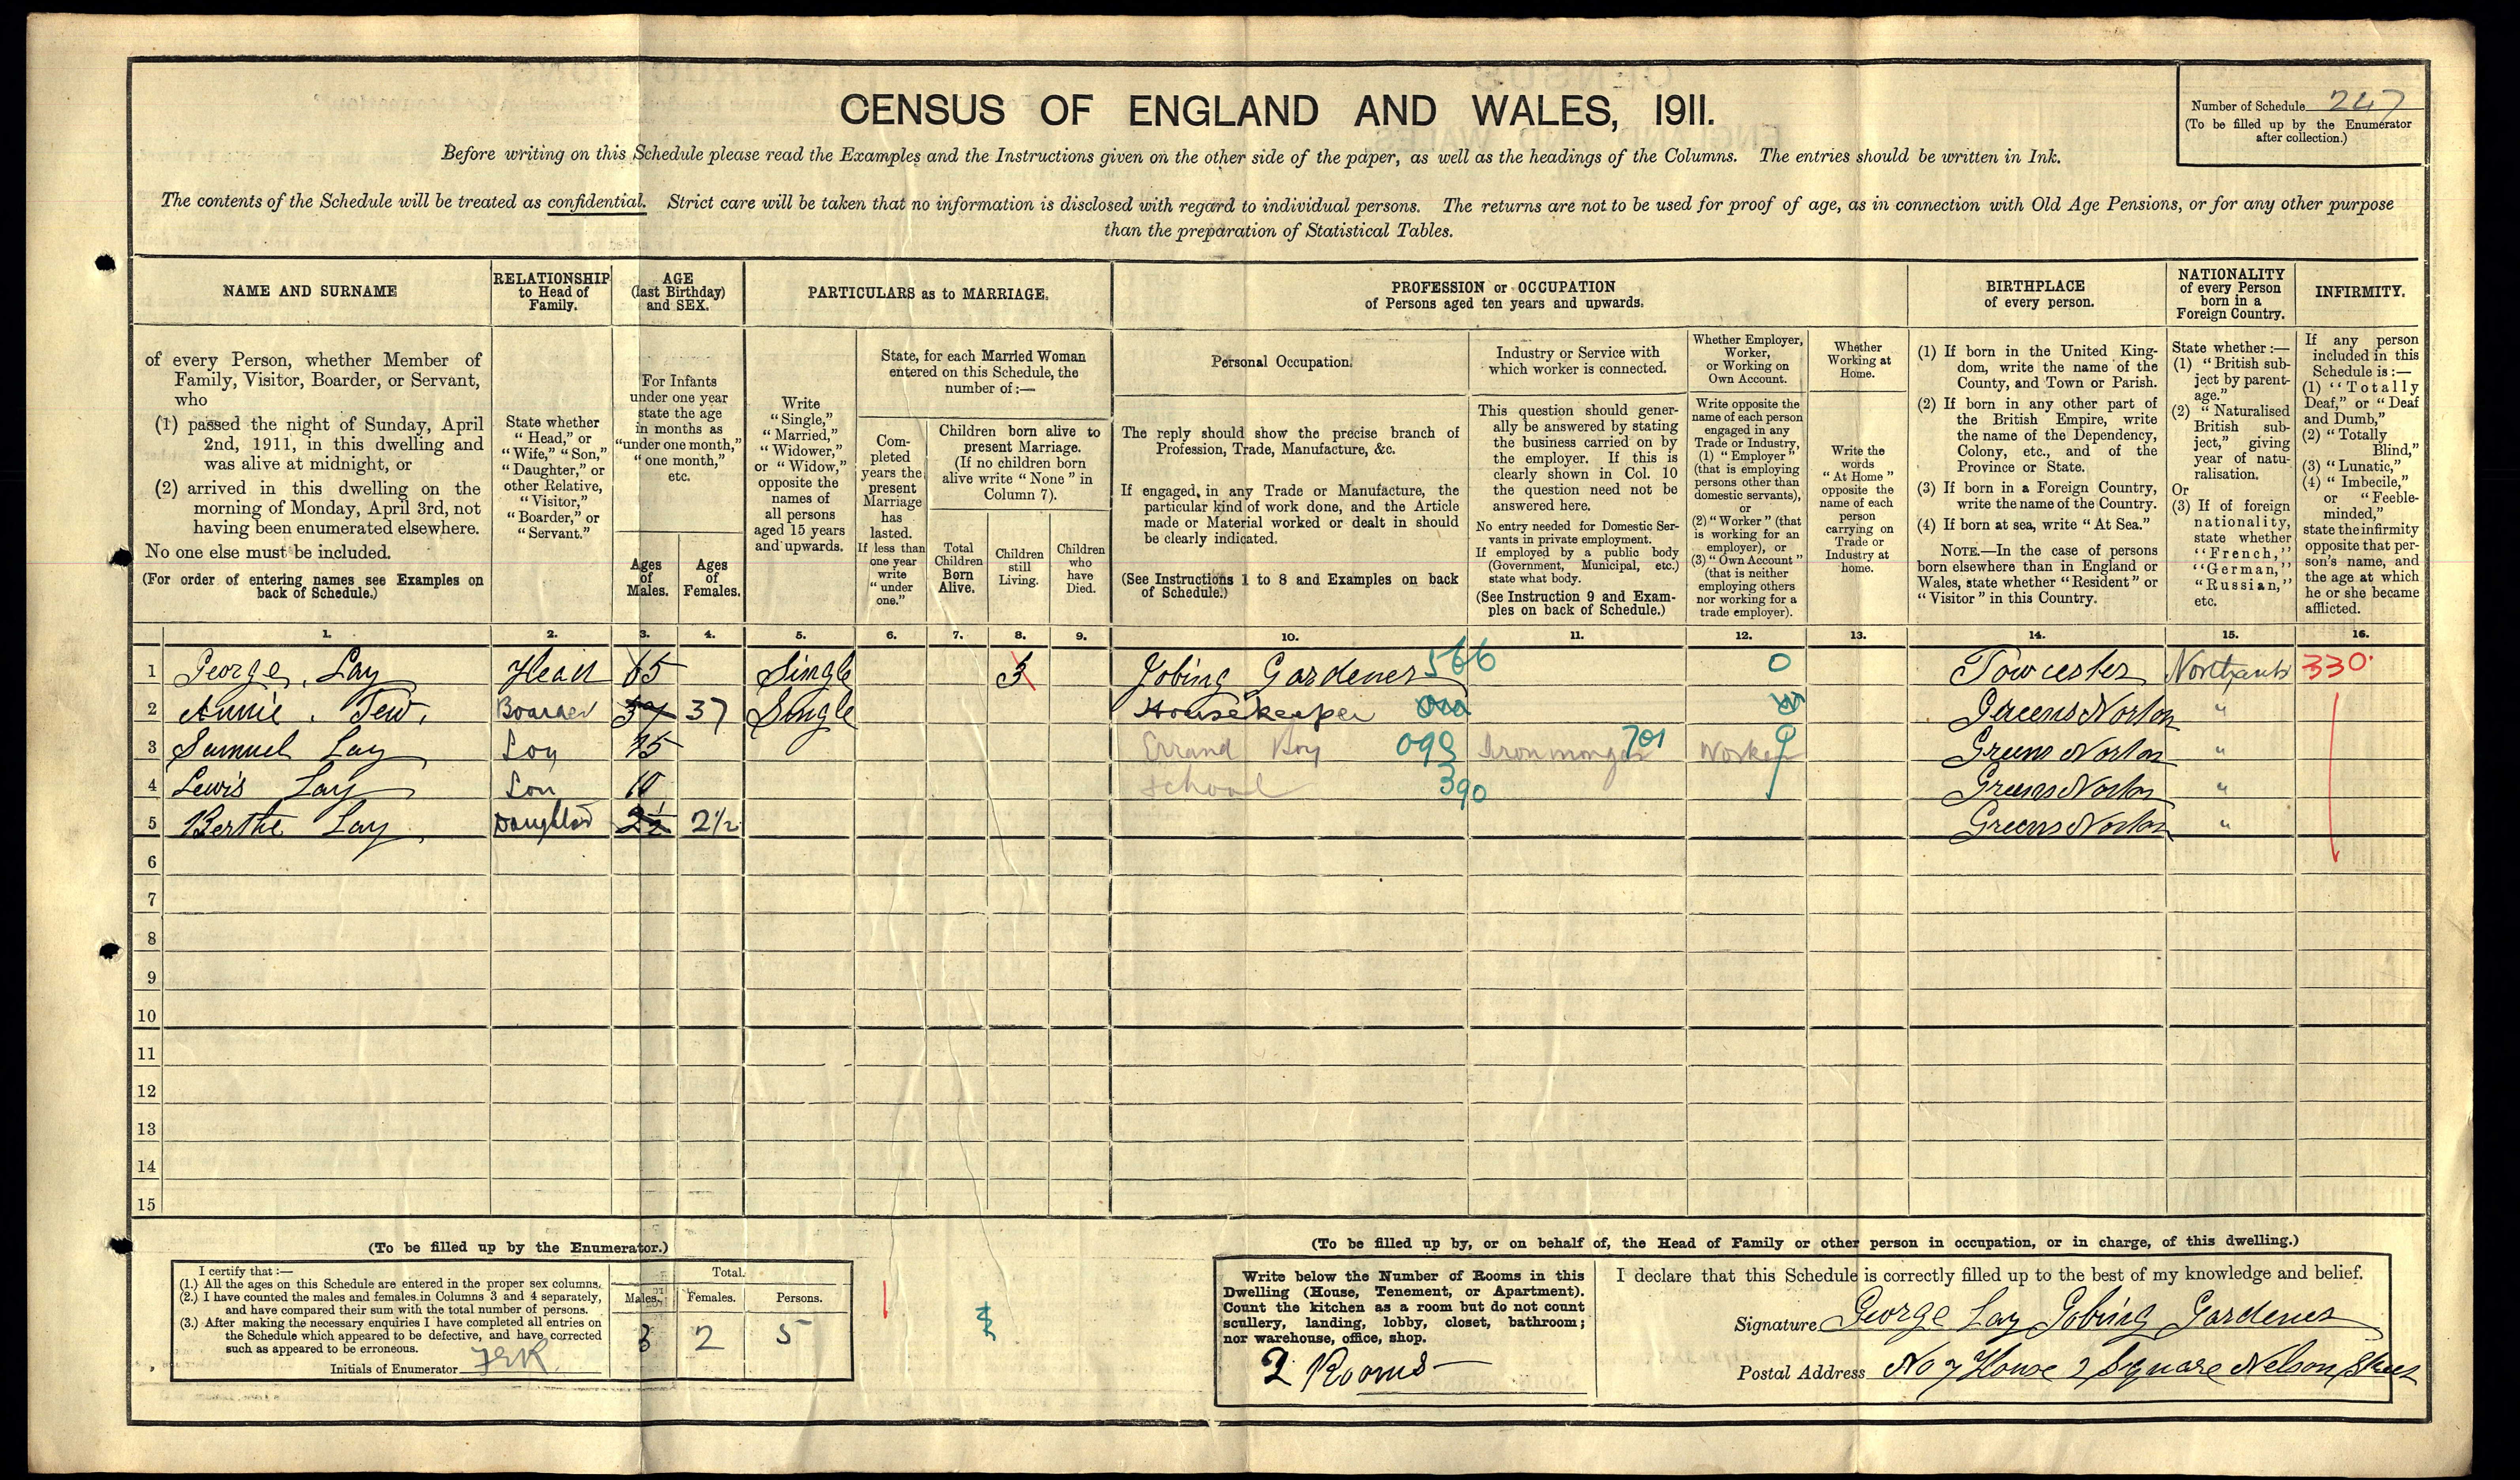 CENSUS OF ENGLAND AND WALES, 1911.
Number of Schedule 247
(To be filled up by the Enumerator
after collection.)
Before writing on this Schedule please read the Examples and the Instructions given on the other side of the paper, as well as the headings of the Columns. The entries should be written in Ink.
The contents of the Schedule will be treated as confidential. Strict care will be taken that no information is disclosed with regard to individual persons. The returns are not to be used for proof of age, as in connection with Old Age Pensions, or for any other purpose
than the preparation of Statistical Tables.
NAME AND SURNAME
of every Person, whether Member of
Family, Visitor, Boarder, or Servant,
who
(1) passed the night of Sunday, April
2nd, 1911, in this dwelling and
was alive at midnight, or
(2) arrived in this dwelling on the
morning of Monday, April 3rd, not
having been enumerated elsewhere.
No one else must be included.
(For order of entering names see Examples on
back of Schedule.)
RELATIONSHIP
to Head of
Family.
State whether
"Head," or
"Wife," "Son,"
"Daughter," or
other Relative,
"Visitor,"
"Boarder," or
"Servant."
AGE
(last Birthday)
and SEX.
For Infants
under one year
state the age
in months as
"under one month,"
"one month,"
etc.
Ages
of
Males.
Ages
of
Females.
PARTICULARS as to MARRIAGE.
Write
"Single,"
"Married,"
"Widower,"
or "Widow,"
opposite the
names of
all persons
aged 15 years
and upwards.
State, for each Married Woman
entered on this Schedule, the
number of:—
Com-
pleted
years the
present
Marriage
has
lasted.
If less than
one year
write
"under
one."
Children born alive to
present Marriage.
(If no children born
alive write "None" in
Column 7).
Total
Children
Born
Alive.
Children
still
Living.
Children
who
have
Died.
PROFESSION or OCCUPATION
of Persons aged ten years and upwards.
Personal Occupation.
The reply should show the precise branch of
Profession, Trade, Manufacture, &c.
If engaged in any Trade or Manufacture, the
particular kind of work done, and the Article
made or Material worked or dealt in should
be clearly indicated.
(See Instructions 1 to 8 and Examples on back
of Schedule.)
Industry or Service with
which worker is connected.
This question should gener-
ally be answered by stating
the business carried on by
the employer. If this is
clearly shown in Col. 10
the question need not be
answered here.
No entry needed for Domestic Ser-
vants in private employment.
If employed by a public body
(Government, Municipal, etc.)
state what body.
(See Instruction 9 and Exam-
ples on back of Schedule.)
Whether Employer,
Worker,
or Working on
Own Account.
Write opposite the
name of each person
engaged in any
Trade or Industry,
(1) "Employer"
(that is employing
persons other than
domestic servants),
or
(2) "Worker" (that
is working for an
employer), or
(3) "Own Account"
(that is neither
employing others
nor working for a
trade employer).
Whether
Working at
Home.
Write the
words
"At Home"
opposite the
name of each
person
carrying on
Trade or
Industry at
home.
BIRTHPLACE
of every person.
(1) If born in the United King-
dom, write the name of the
County, and Town or Parish.
(2) If born in any other part of
the British Empire, write
the name of the Dependency,
Colony, etc., and of the
Province or State.
(3) If born in a Foreign Country,
write the name of the Country.
(4) If born at sea, write "At Sea."
NOTE.—In the case of persons
born elsewhere than in England or
Wales, state whether "Resident" or
"Visitor" in this Country.
NATIONALITY
of every Person
born in a
Foreign Country.
State whether:—
(1) "British sub-
ject by parent-
age."
(2) "Naturalised
British sub-
ject," giving
year of natu-
ralisation.
Or
(3) If of foreign
nationality,
state whether
"French,"
"German,"
"Russian,"
etc.
INFIRMITY.
If any person
included in this
Schedule is:—
(1) "Totally
Deaf," or "Deaf
and Dumb,"
(2) "Totally
Blind,"
(3) "Lunatic,"
(4) "Imbecile,"
or "Feeble-
minded,"
state the infirmity
opposite that per-
son's name, and
the age at which
he or she became
afflicted.
1. 2. 3. 4. 5. 6. 7. 8. 9. 10. 11. 12. 13. 14. 15. 16.
1 George Lay Head 65 Single 3 Jobing Gardener 566 0 Towcester Northants 330
2 Annie Tew Boarder 37 37 Single Housekeeper Greens Norton "
3 Samuel Lay Son 15 Errand Boy 098 Ironmonger 701 Worker Greens Norton "
4 Lewis Lay Son 10 School 390 Greens Norton "
5 Berthe Lay Daughter 2½ 2½ Greens Norton "
6
7
8
9
10
11
12
13
14
15
(To be filled up by the Enumerator.)
I certify that:—
(1.) All the ages on this Schedule are entered in the proper sex columns.
(2.) I have counted the males and females in Columns 3 and 4 separately,
and have compared their sum with the total number of persons.
(3.) After making the necessary enquiries I have completed all entries on
the Schedule which appeared to be defective, and have corrected
such as appeared to be erroneous.
Initials of Enumerator
Total.
Males. Females. Persons.
3 2 5
(To be filled up by, or on behalf of, the Head of Family or other person in occupation, or in charge, of this dwelling.)
Write below the Number of Rooms in this
Dwelling (House, Tenement, or Apartment).
Count the kitchen as a room but do not count
scullery, landing, lobby, closet, bathroom;
nor warehouse, office, shop.
2 Rooms
I declare that this Schedule is correctly filled up to the best of my knowledge and belief.
Signature George Lay Jobing Gardener
Postal Address No 7 House 2 Square Nelson Street